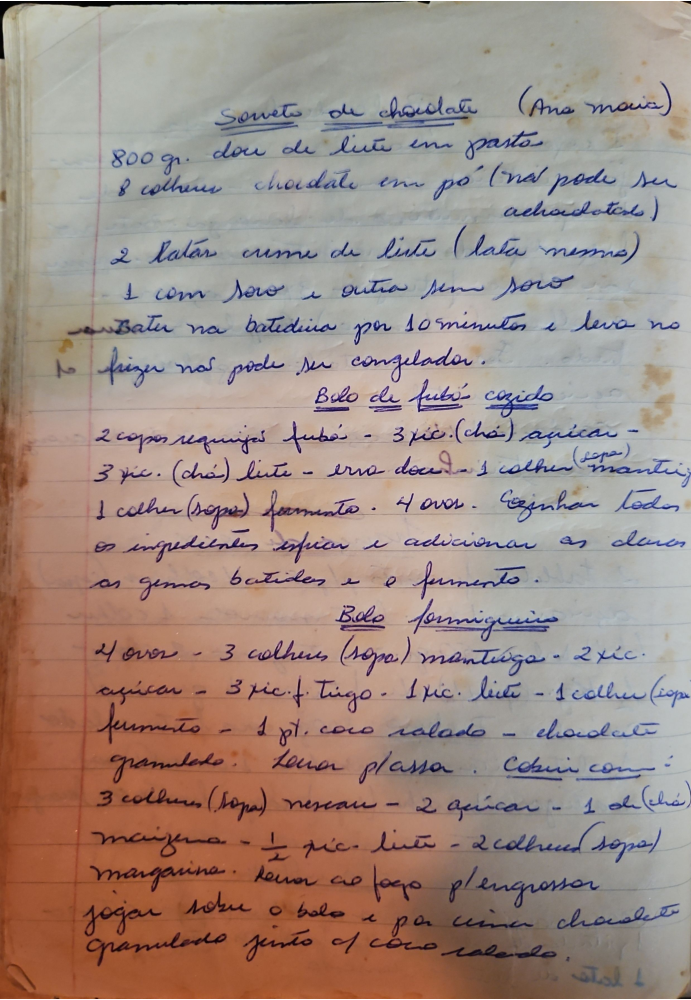 Sorvete de chocolate (Ana maria)
800 gr. doce de leite em pasta
8 colheres chocolate em pó (não pode ser
achocolatado)
2 latas creme de leite (lata mesmo)
1 com soro e outra sem soro
Bater na batedeira por 10 minutos e leva no
frizer não pode ser congelador.
Bolo de fubá cozido
2 copos requeijão fubá - 3 xic. (chá) açúcar -
3 xic. (chá) leite - erva doce - 1 colher (sopa) manteiga
1 colher (sopa) fermento. 4 ovos. Cozinhar todos
os ingredientes esfriar e adicionar as claras
as gemas batidas e o fermento.
Bolo formigueiro
4 ovos - 3 colheres (sopa) manteiga - 2 xic.
açúcar - 3 xic. f. trigo - 1 xic. leite - 1 colher (sopa
fermento - 1 pt. coco ralado - chocolate
granulado. Levar p/assar. Cobrir com:
3 colheres (sopa) nescau - 2 açúcar - 1 de (chá)
maizena - 1/2 xic. leite - 2 colheres (sopa)
margarina. Levar ao fogo p/engrossar
jogar sobre o bolo e por cima chocolate
granulado junto c/ coco ralado.